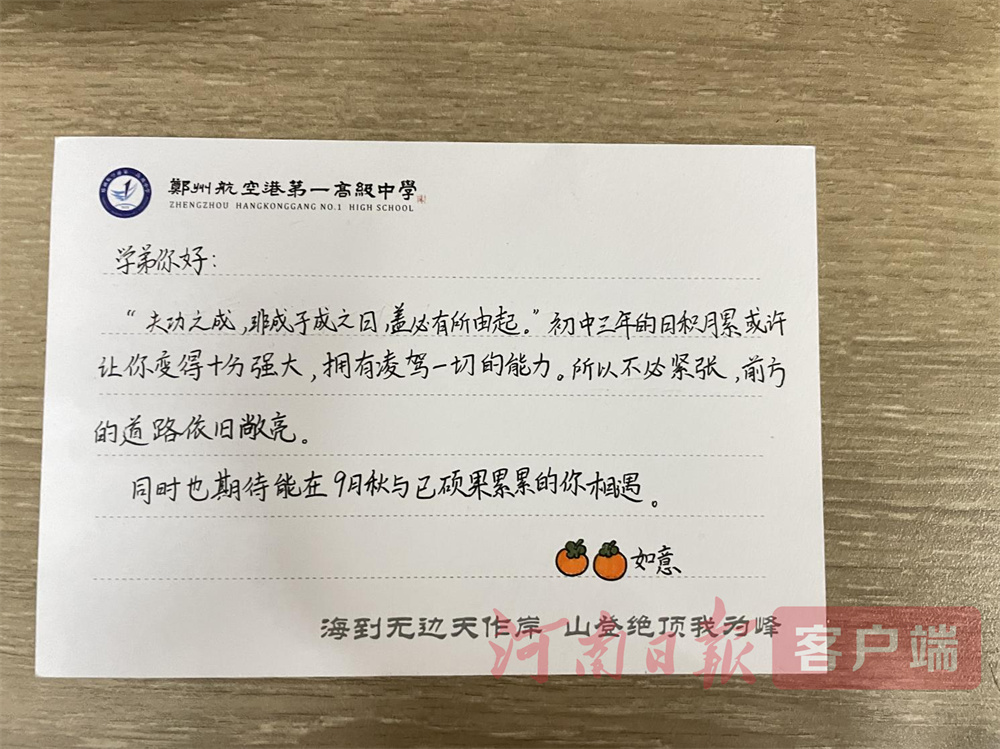 鄭州航空港第一高級中學
ZHENGZHOU HANGKONGGANG NO.1 HIGH SCHOOL
学弟你好：
“夫功之成，非成于成之日，盖必有所由起。”初中三年的日积月累或许
让你变得十分强大，拥有凌驾一切的能力。所以不必紧张，前方
的道路依旧敞亮。
同时也期待能在9月秋与已硕果累累的你相遇。
如意
海到无边天作岸 山登绝顶我为峰
河南日报 客户端